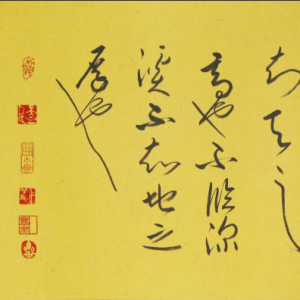 知天之
高也不臨深
溪不知地之
厚也